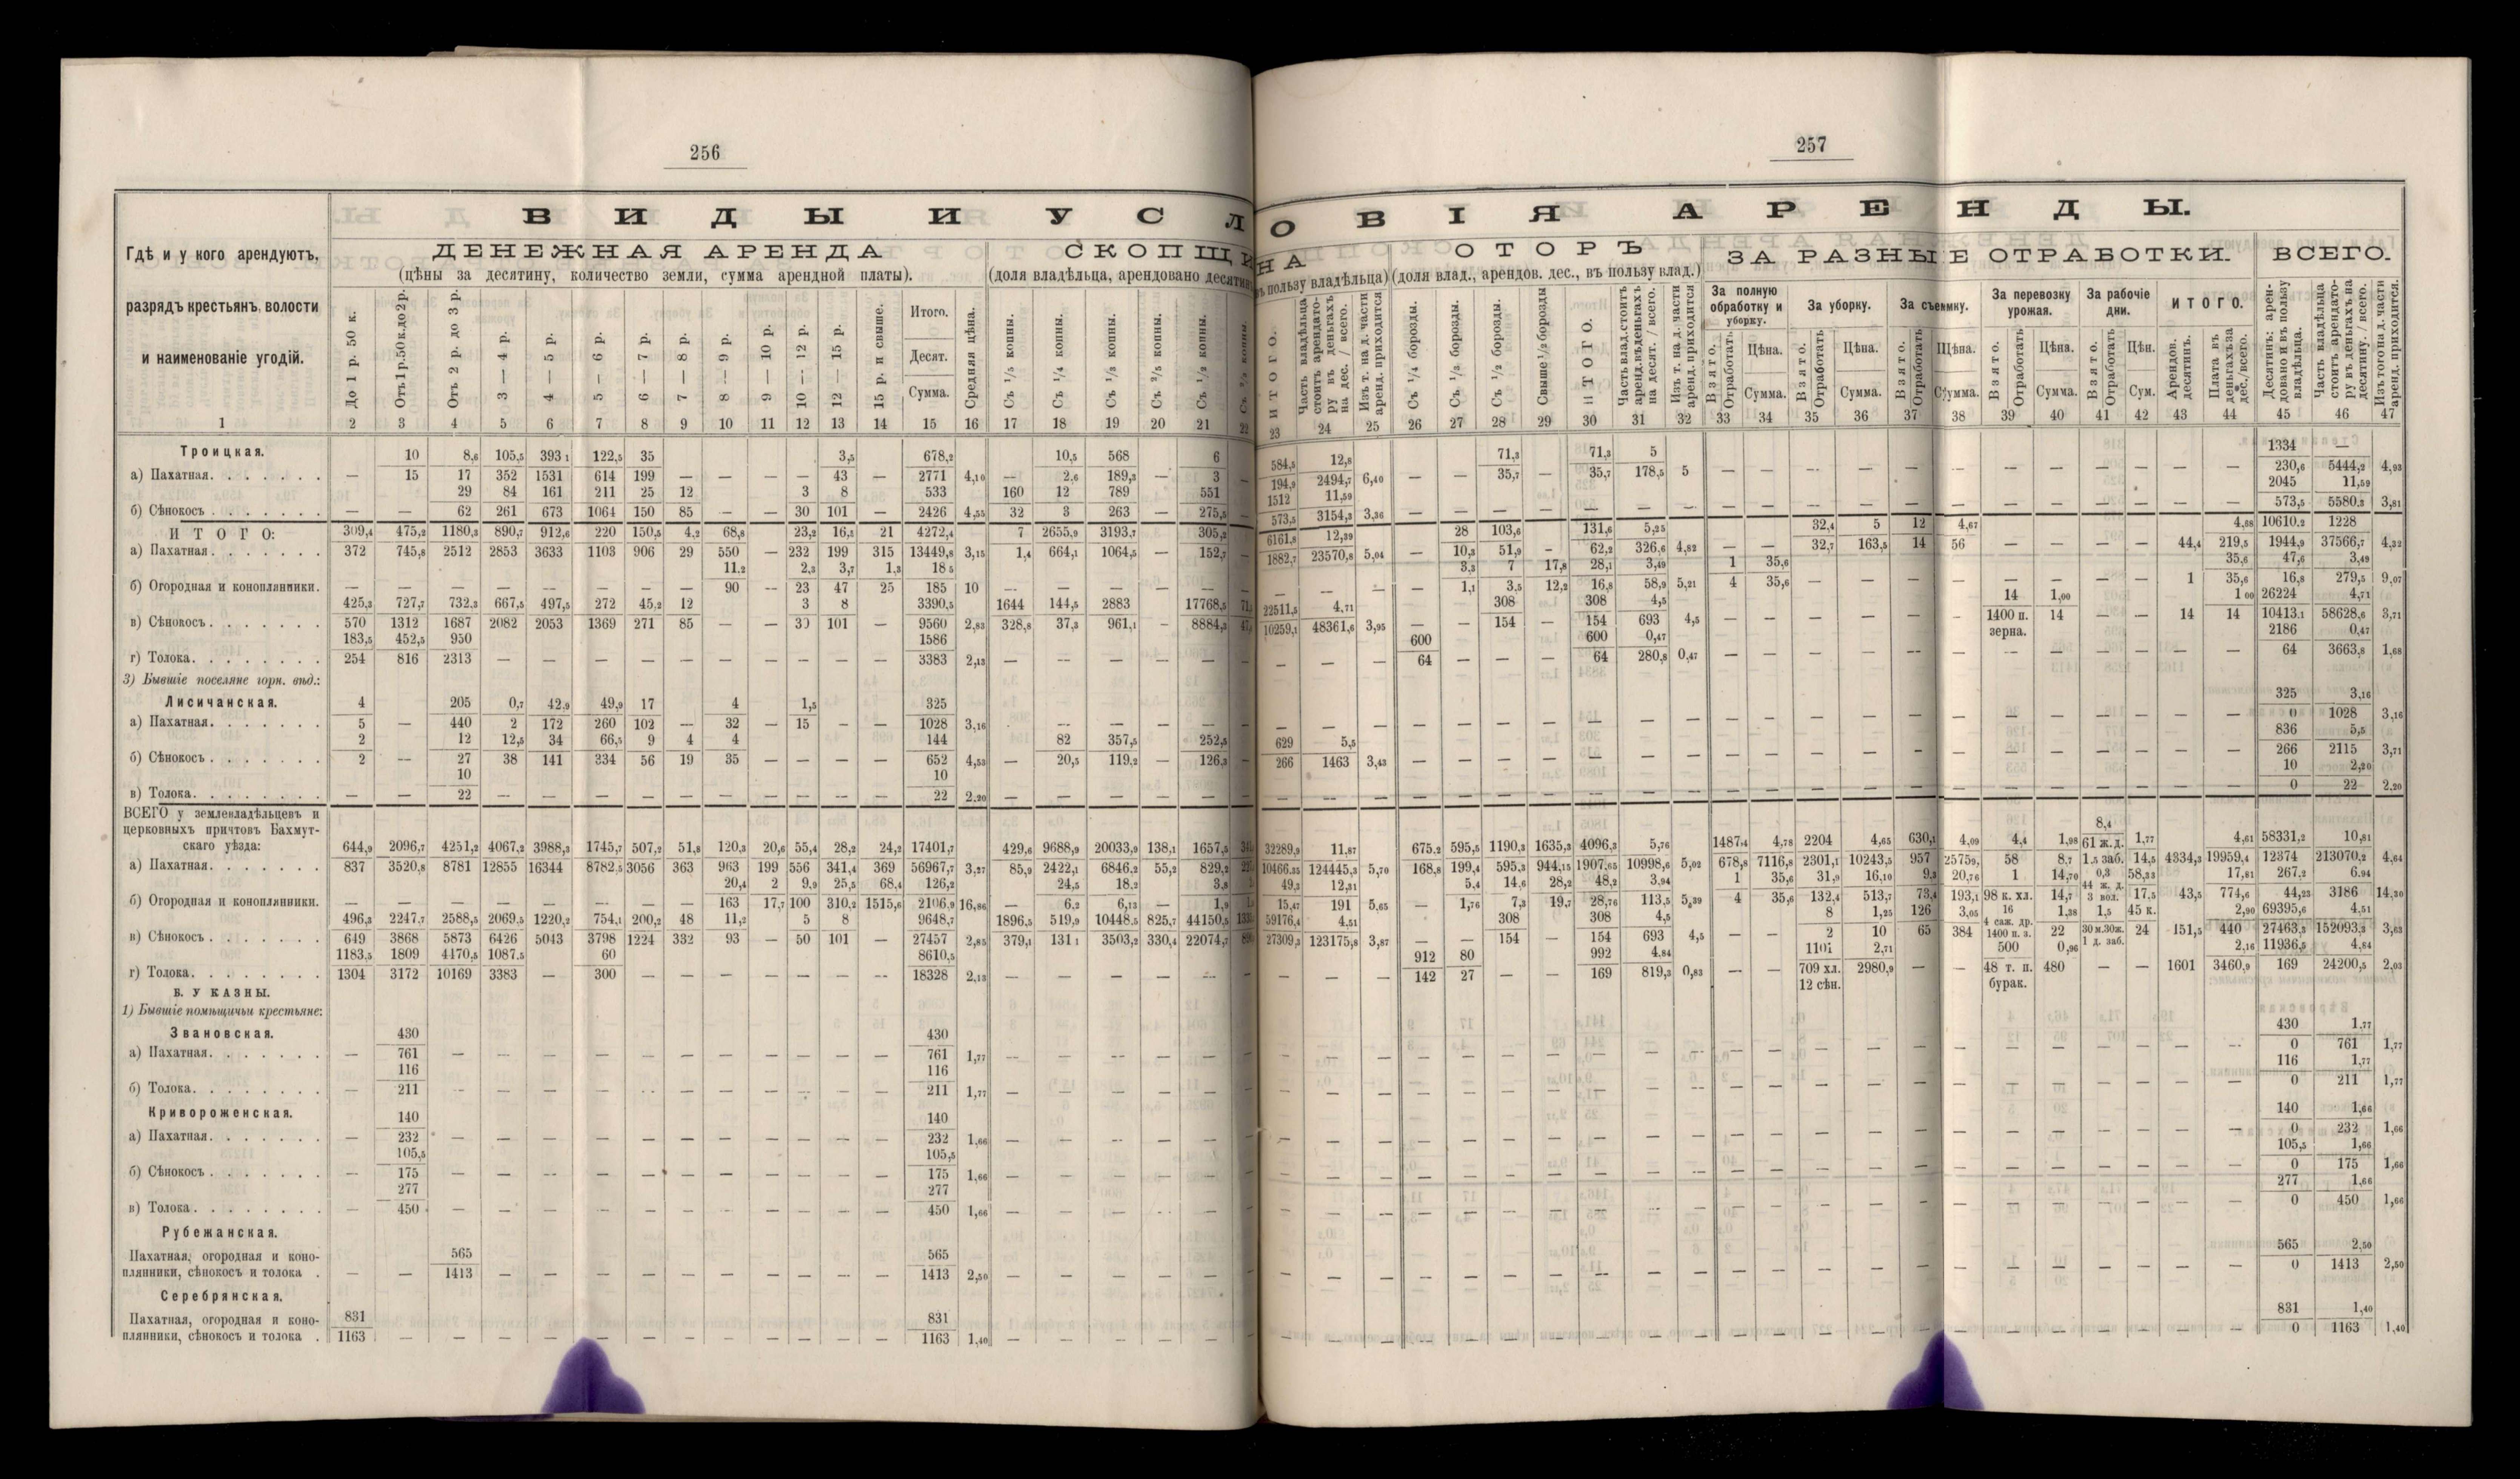 256
257
ВИДЫ И УСЛОВІЯ АРЕНДЫ.
Гдѣ и у кого арендуютъ,
разрядъ крестьянъ, волости
и наименованіе угодій.
ДЕНЕЖНАЯ АРЕНДА
(цѣны за десятину, количество земли, сумма арендной платы).
СКОПЩИНА
(доля владѣльца, арендовано десятинъ, въ пользу владѣльца)
ОТОРЪ
(доля влад., арендов. дес., въ пользу влад.)
ЗА РАЗНЫЕ ОТРАБОТКИ.
ВСЕГО.
До 1 р. 50 к.
Отъ 1 р. 50 к. до 2 р.
Отъ 2 р. до 3 р.
3 — 4 р.
4 — 5 р.
5 — 6 р.
6 — 7 р.
7 — 8 р.
8 — 9 р.
9 — 10 р.
10 — 12 р.
12 — 15 р.
15 р. и свыше.
Итого.
Десят.
Сумма.
Средняя цѣна.
Съ 1/5 копны.
Съ 1/4 копны.
Съ 1/3 копны.
Съ 2/5 копны.
Съ 1/2 копны.
ИТОГО.
Часть владѣльца стоитъ арендатору въ деньгахъ на дес. / всего.
Изъ т. на д. части аренд. приходится
Съ 1/4 борозды.
Съ 1/3 борозды.
Съ 1/2 борозды.
Свыше 1/2 борозды
ИТОГО.
Часть влад. стоитъ аренд. въ деньгахъ на десят. / всего.
Изъ т. на д. части аренд. приходится
За полную обработку и уборку.
За уборку.
За съемку.
За перевозку урожая.
За рабочіе дни.
ИТОГО.
Взято.
Отработать
Цѣна.
Сумма.
Арендов. десятинъ.
Плата въ деньгахъ за дес./всего.
Десятинъ: арендовано и въ пользу владѣльца.
Часть владѣльца стоитъ арендатору въ деньгахъ на десятину. / всего.
Изъ того на д. части аренд. приходится.
1 2 3 4 5 6 7 8 9 10 11 12 13 14 15 16 17 18 19 20 21 22 23 24 25 26 27 28 29 30 31 32 33 34 35 36 37 38 39 40 41 42 43 44 45 46 47
Троицкая.
10 8,6 105,5 393,1 122,5 35 3,5 678,2 10,5 568 6 584,5 12,8 71,3 71,3 5 1334 —
а) Пахатная. — 15 17 352 1531 614 199 — — — — 43 — 2771 4,10 — 2,6 189,3 — 3 — 194,9 2494,7 6,40 — — 35,7 — 35,7 178,5 5 230,6 5444,2 4,93
29 84 161 211 25 12 3 8 533 160 12 789 551 1512 11,59 2045 11,59
б) Сѣнокосъ. — — 62 261 673 1064 150 85 — — 30 101 — 2426 4,55 32 3 263 — 275,5 — 573,5 3154,3 3,36 573,5 5580,3 3,81
ИТОГО:
309,4 475,2 1180,3 890,7 912,6 220 150,5 4,2 68,8 23,2 16,5 21 4272,4 7 2655,9 3193,7 305,2 6161,8 12,39 28 103,6 131,6 5,25 32,4 5 12 4,67 4,68 10610,2 1228
а) Пахатная. 372 745,8 2512 2853 3633 1103 906 29 550 — 232 199 315 13449,8 3,15 1,4 664,1 1064,5 — 152,7 1882,7 23570,8 5,04 — 10,3 51,9 — 62,2 326,6 4,82 — — 32,7 163,5 14 56 44,4 219,5 1944,9 37566,7 4,32
11,2 2,3 3,7 1,3 18,5 3,3 7 17,8 28,1 3,49 1 35,6 35,6 47,6 3,49
б) Огородная и конопляники. 90 — 23 47 25 185 10 — 1,1 3,5 12,2 16,8 58,9 5,21 4 35,6 1 35,6 16,8 279,5 9,07
425,3 727,7 732,3 667,5 497,5 272 45,2 12 3 8 3390,5 1644 144,5 2883 17768,5 22511,5 4,71 308 308 4,5 14 1,00 1 00 26224 4,71
в) Сѣнокосъ. 570 1312 1687 2082 2053 1369 271 85 — — 30 101 — 9560 2,83 328,8 37,3 961,1 — 8884,3 10259,1 48361,6 3,95 — — 154 — 154 693 4,5 1400 п. зерна. 14 — — 14 14 10413,1 58628,6 3,71
183,5 452,5 950 1586 600 600 0,47 2186 0,47
г) Толока. 254 816 2313 — 3383 2,13 — 64 — — — 64 280,8 0,47 64 3663,8 1,68
3) Бывшіе поселяне горн. вѣд.:
Лисичанская.
4 205 0,7 42,9 49,9 17 4 1,5 325 325 3,16
а) Пахатная. 5 — 440 2 172 260 102 — 32 — 15 — — 1028 3,16 0 1028 3,16
2 12 12,5 34 66,5 9 4 4 144 82 357,5 252,5 629 5,5 836 5,5
б) Сѣнокосъ. 2 — 27 38 141 334 56 19 35 — — — — 652 4,53 — 20,5 119,2 — 126,3 — 266 1463 3,43 266 2115 3,71
10 10 10 2,20
в) Толока. — — 22 — 22 2,20 0 22 2,20
ВСЕГО у землевладѣльцевъ и
церковныхъ причтовъ Бахмут-
скаго уѣзда:
644,9 2096,7 4251,2 4067,2 3988,3 1745,7 507,2 51,8 120,3 20,6 55,4 28,2 24,2 17401,7 429,6 9688,9 20033,9 138,1 1657,5 32289,9 11,87 675,2 595,5 1190,3 1635,3 4096,3 5,76 1487,4 4,78 2204 4,65 630,1 4,09 4,4 1,98 8,4 61 ж.д. 1,77 4,61 58331,2 10,81
а) Пахатная. 837 3520,8 8781 12855 16344 8782,5 3056 363 963 199 556 341,4 369 56967,7 3,27 85,9 2422,1 6846,2 55,2 829,2 10466,35 124445,3 5,70 168,8 199,4 595,3 944,15 1907,65 10998,6 5,02 678,8 7116,8 2301,1 10243,5 957 2575,9 58 8,7 1,5 заб. 14,5 4334,3 19959,4 12374 213070,2 4,64
20,4 2 9,9 25,5 68,4 126,2 24,5 18,2 3,8 49,3 12,31 5,4 14,6 28,2 48,2 3,94 1 35,6 31,9 16,10 9,3 20,76 1 14,70 0,3 58,33 17,81 267,2 6,94
б) Огородная и конопляники. 163 17,7 100 310,2 1515,6 2106,9 16,86 — 6,2 6,13 — 1,9 15,47 191 5,65 — 1,76 7,3 19,7 28,76 113,5 5,39 4 35,6 132,4 513,7 73,4 193,1 98 к. хл. 14,7 44 ж. д. 3 вол. 17,5 43,5 774,6 44,23 3186 14,30
496,3 2247,7 2588,5 2069,5 1220,2 754,1 200,2 48 11,2 5 8 9648,7 1896,5 519,9 10448,5 825,7 44150,5 59176,4 4,51 308 308 4,5 8 1,25 126 3,05 16 1,38 1,5 45 к. 2,90 69395,6 4,51
в) Сѣнокосъ. 649 3868 5873 6426 5043 3798 1224 332 93 — 50 101 — 27457 2,85 379,1 131,1 3503,2 330,4 22074,7 27309,3 123175,8 3,87 — — 154 — 154 693 4,5 — — 2 10 65 384 4 саж. др. 1400 п. з. 22 30 м. 30 ж. 1 д. заб. 24 151,5 440 27463,3 152093,3 3,63
1183,5 1809 4170,5 1087,5 60 8610,5 912 80 992 4,84 1101 2,71 500 0,96 2,16 11936,5 4,84
г) Толока. 1304 3172 10169 3383 — 300 — 18328 2,13 — 142 27 — — 169 819,3 0,83 — — 709 хл. 12 сѣн. 2980,9 — — 48 т. п. бурак. 480 — — 1601 3460,9 169 24200,5 2,03
Б. У КАЗНЫ.
1) Бывшіе помѣщичьи крестьяне:
Звановская.
430 430 430 1,77
а) Пахатная. — 761 — 761 1,77 0 761 1,77
116 116 116 1,77
б) Толока. — 211 — 211 1,77 0 211 1,77
Кривороженская.
140 140 140 1,66
а) Пахатная. — 232 — 232 1,66 0 232 1,66
105,5 105,5 105,5 1,66
б) Сѣнокосъ. — 175 — 175 1,66 0 175 1,66
277 277 277 1,66
в) Толока. — 450 — 450 1,66 0 450 1,66
Рубежанская.
Пахатная, огородная и коно- 565 565 565 2,50
плянники, сѣнокосъ и толока . — — 1413 — 1413 2,50 0 1413 2,50
Серебрянская.
Пахатная, огородная и коно- 831 831 831 1,40
плянники, сѣнокосъ и толока . 1163 — 1163 1,40 0 1163 1,40